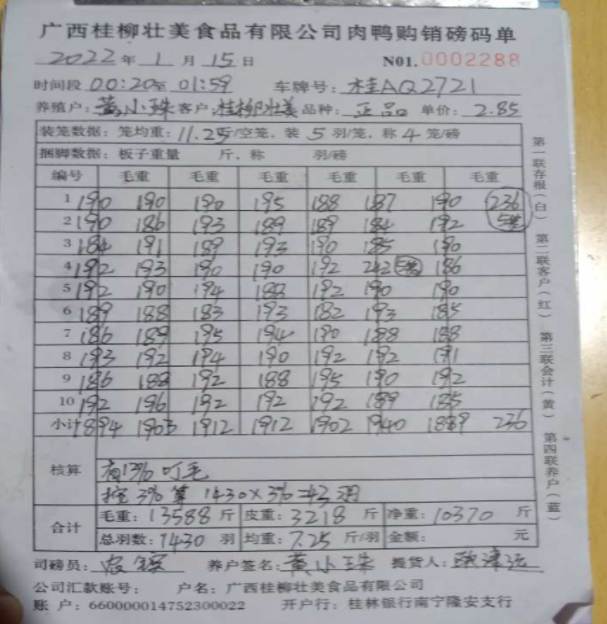 广西桂柳壮美食品有限公司肉鸭购销磅码单
2022年 1月 15日 N01.0002288
时间段 00:20至 01:59 车牌号：桂AQ2721
养殖户：黄小珠 客户：桂柳壮美 品种：正品 单价：2.85
装笼数据：笼均重：11.25斤/空笼，装 5 羽/笼，称 4 笼/磅
捆脚数据：板子重量 斤，称 羽/磅
编号 毛重 毛重 毛重 毛重 毛重 毛重 毛重
1 190 190 190 195 188 187 190 236
2 190 186 193 189 189 184 192 5笼
3 184 191 189 193 190 185 190
4 192 193 190 190 192 242 5笼 186
5 192 190 194 188 192 190 190
6 189 188 183 193 182 193 185
7 186 189 195 194 190 188 188
8 193 192 194 190 192 192 191
9 186 188 192 188 195 190 192
10 192 196 192 192 192 189 185
小计 1894 1903 1912 1912 1902 1940 1889 236
核算 有13% 叮毛
3% 算 1430×3%=43羽
合计 毛重：13588 斤 皮重：3218 斤 净重：10370 斤
总羽数：1430 羽 均重：7.25 斤/羽 金额： 元
司磅员： 养户签名：黄小珠 提货人：
公司汇款账号： 户名：广西桂柳壮美食品有限公司
账 户：660000014752300022 开户行：桂林银行南宁隆安支行
第一联存根（白）第二联客户（红）第三联会计（黄）第四联养户（蓝）